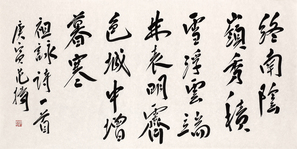 終南陰
嶺秀積
雪浮雲端
林表明霽
色城中增
暮寒
祖詠詩一首
庚寅